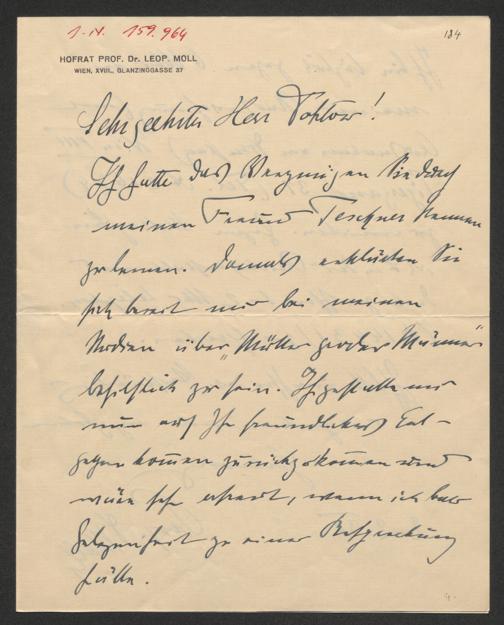 1-N. 159.964
184
HOFRAT PROF. Dr. LEOP. MOLL
WIEN, XVIII., GLANZINGGASSE 37
Sehr geehrter Herr Doktor!
Ich hatte das Vergnügen Sie durch
meinen Freund Teschner kennen
zu lernen. Damals erklärten Sie
sich bereit mir bei meinen
Studien über „Mütter großer Männer"
behilflich zu sein. Ich gestatte mir
nun auf Ihr freundliches Ent-
gegenkommen zurückzukommen und
wäre sehr erfreut, wenn ich bald
Gelegenheit zu einer Besprechung
hätte.